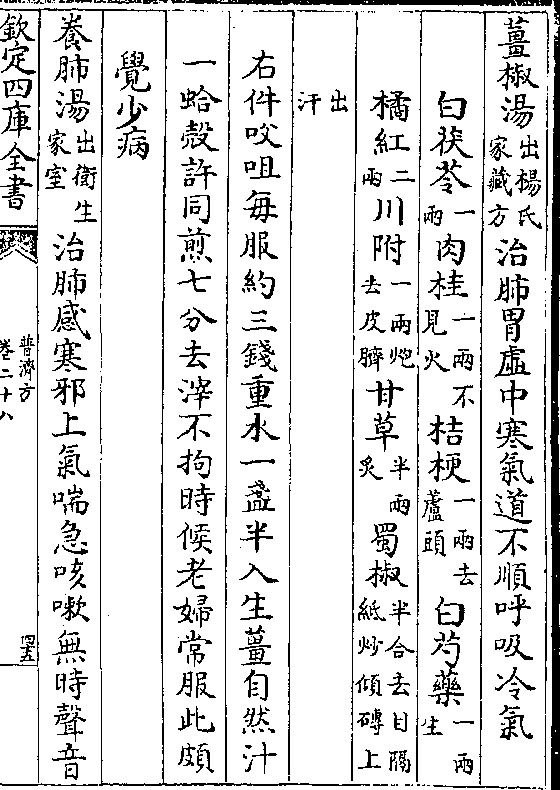 薑椒湯出楊氏家藏方治肺胃虛中寒氣道不順呼吸冷氣
白茯苓一兩肉桂一兩不見火桔梗一兩去蘆頭白芍藥一兩生
橘紅二兩川附一兩炮去皮臍甘草半兩炙蜀椒半合去目隔紙炒傾磚上
出汗
右件㕮咀每服約三錢重水一盞半入生薑自然汁
一蛤殼許同煎七分去滓不拘時候老婦常服此頗
覺少病
養肺湯出衛生家室治肺感寒邪上氣喘急咳嗽無時聲音
欽定四庫全書
普濟方
卷二十八
四五